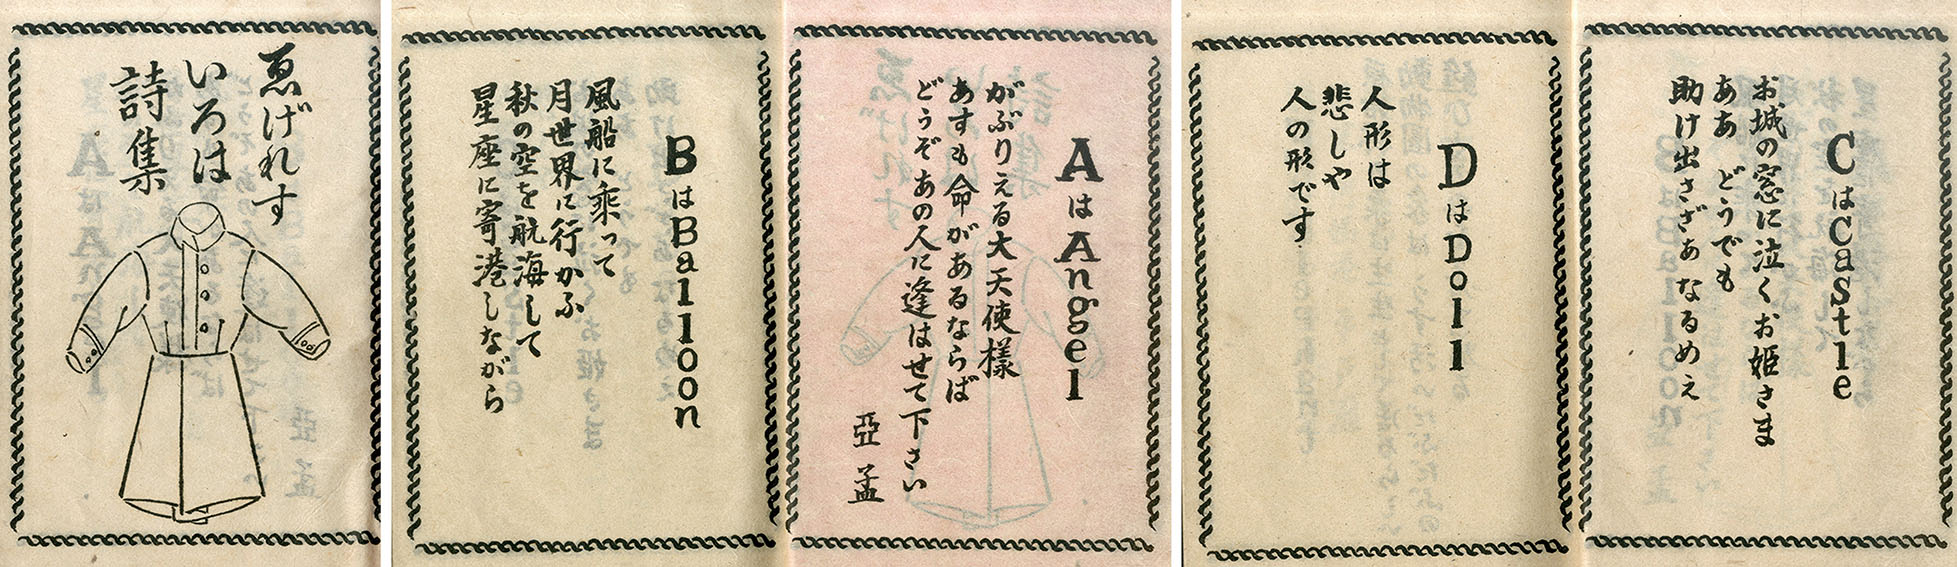 ゑげれす
いろは
詩集
AはAngel
がぶりえる大天使様
あすも命があるならば
どうぞあの人に逢はせて下さい
亞孟
BはBalloon
風船に乘って
月世界に行かふ
秋の空を航海して
星座に寄港しながら
CはCastle
お城の窓に泣くお姫さま
ああ どうでも
助け出さざあなるめえ
DはDoll
人形は
悲しや
人の形です